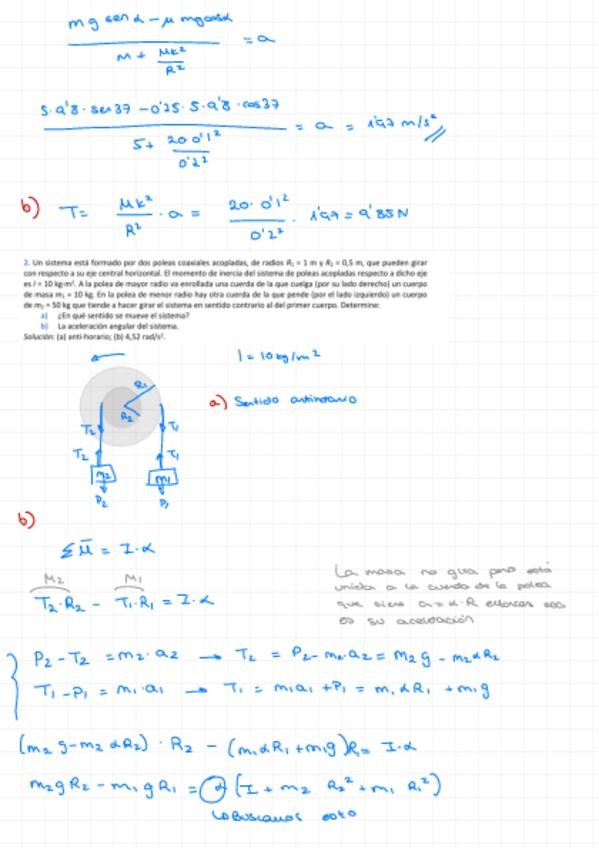 mg sen α - μ mg cos α
M + MK²/R² = a
5·9'8·sen37 - 0'25·5·9'8·cos37
5 + 20·0'1²/0'2² = a = 1'97 m/s²
b) T = MK²/R² · a = 20·0'1²/0'2² · 1'97 = 9'85 N
2. Un sistema está formado por dos poleas coaxiales acopladas, de radios R₁ = 1 m y R₂ = 0,5 m, que pueden girar
con respecto a su eje central horizontal. El momento de inercia del sistema de poleas acopladas respecto a dicho eje
es I = 10 kg·m². A la polea de mayor radio va enrollada una cuerda de la que cuelga (por su lado derecho) un cuerpo
de masa m₁ = 10 kg. En la polea de menor radio hay otra cuerda de la que pende (por el lado izquierdo) un cuerpo
de m₂ = 50 kg que tiende a hacer girar el sistema en sentido contrario al del primer cuerpo. Determine:
a) ¿En qué sentido se mueve el sistema?
b) La aceleración angular del sistema.
Solución: (a) anti-horario; (b) 4,52 rad/s².
I = 10 kg/m²
R₁
R₂
a) Sentido antihorario
T₂ T₁
T₂ T₁
m₂ m₁
P₂ P₁
b)
ΣM̄ = I·α
M₂ M₁
T₂·R₂ - T₁·R₁ = I·α
La masa no gira pero está
unida a la cuerda de la polea
que tiene a = α·R entonces esa
es su aceleración
P₂ - T₂ = m₂·a₂ → T₂ = P₂ - m₂·a₂ = m₂g - m₂αR₂
T₁ - P₁ = m₁·a₁ → T₁ = m₁a₁ + P₁ = m₁αR₁ + m₁g
(m₂g - m₂αR₂)·R₂ - (m₁αR₁ + m₁g)R₁ = I·α
m₂gR₂ - m₁gR₁ = α (I + m₂ R₂² + m₁ R₁²)
↳ Buscamos esto